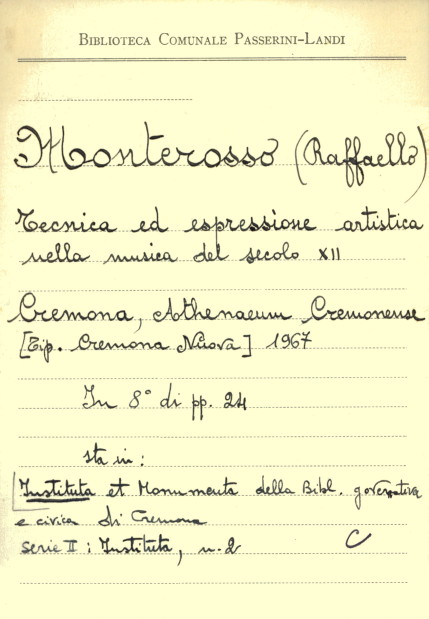 BIBLIOTECA COMUNALE PASSERINI-LANDI
Monterosso (Raffaello)
Tecnica ed espressione artistica
nella musica del secolo XII
Cremona, Athenaeum Cremonense
[Tip. Cremona Nuova] 1967
In 8° di pp. 24
sta in:
Instituta et Monumenta della Bibl. governativa
e civica di Cremona
serie II: Instituta, n. 2
C